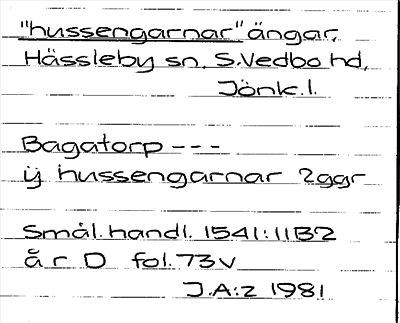 "hussengarnar" ängar,
Hässleby sn, S.Vedbo hd,
Jönk.l.
Bagatorp ---
ÿ hussengarnar 2ggr
Smål.handl. 1541:11B2
år D fol.73v
J.A:z 1981